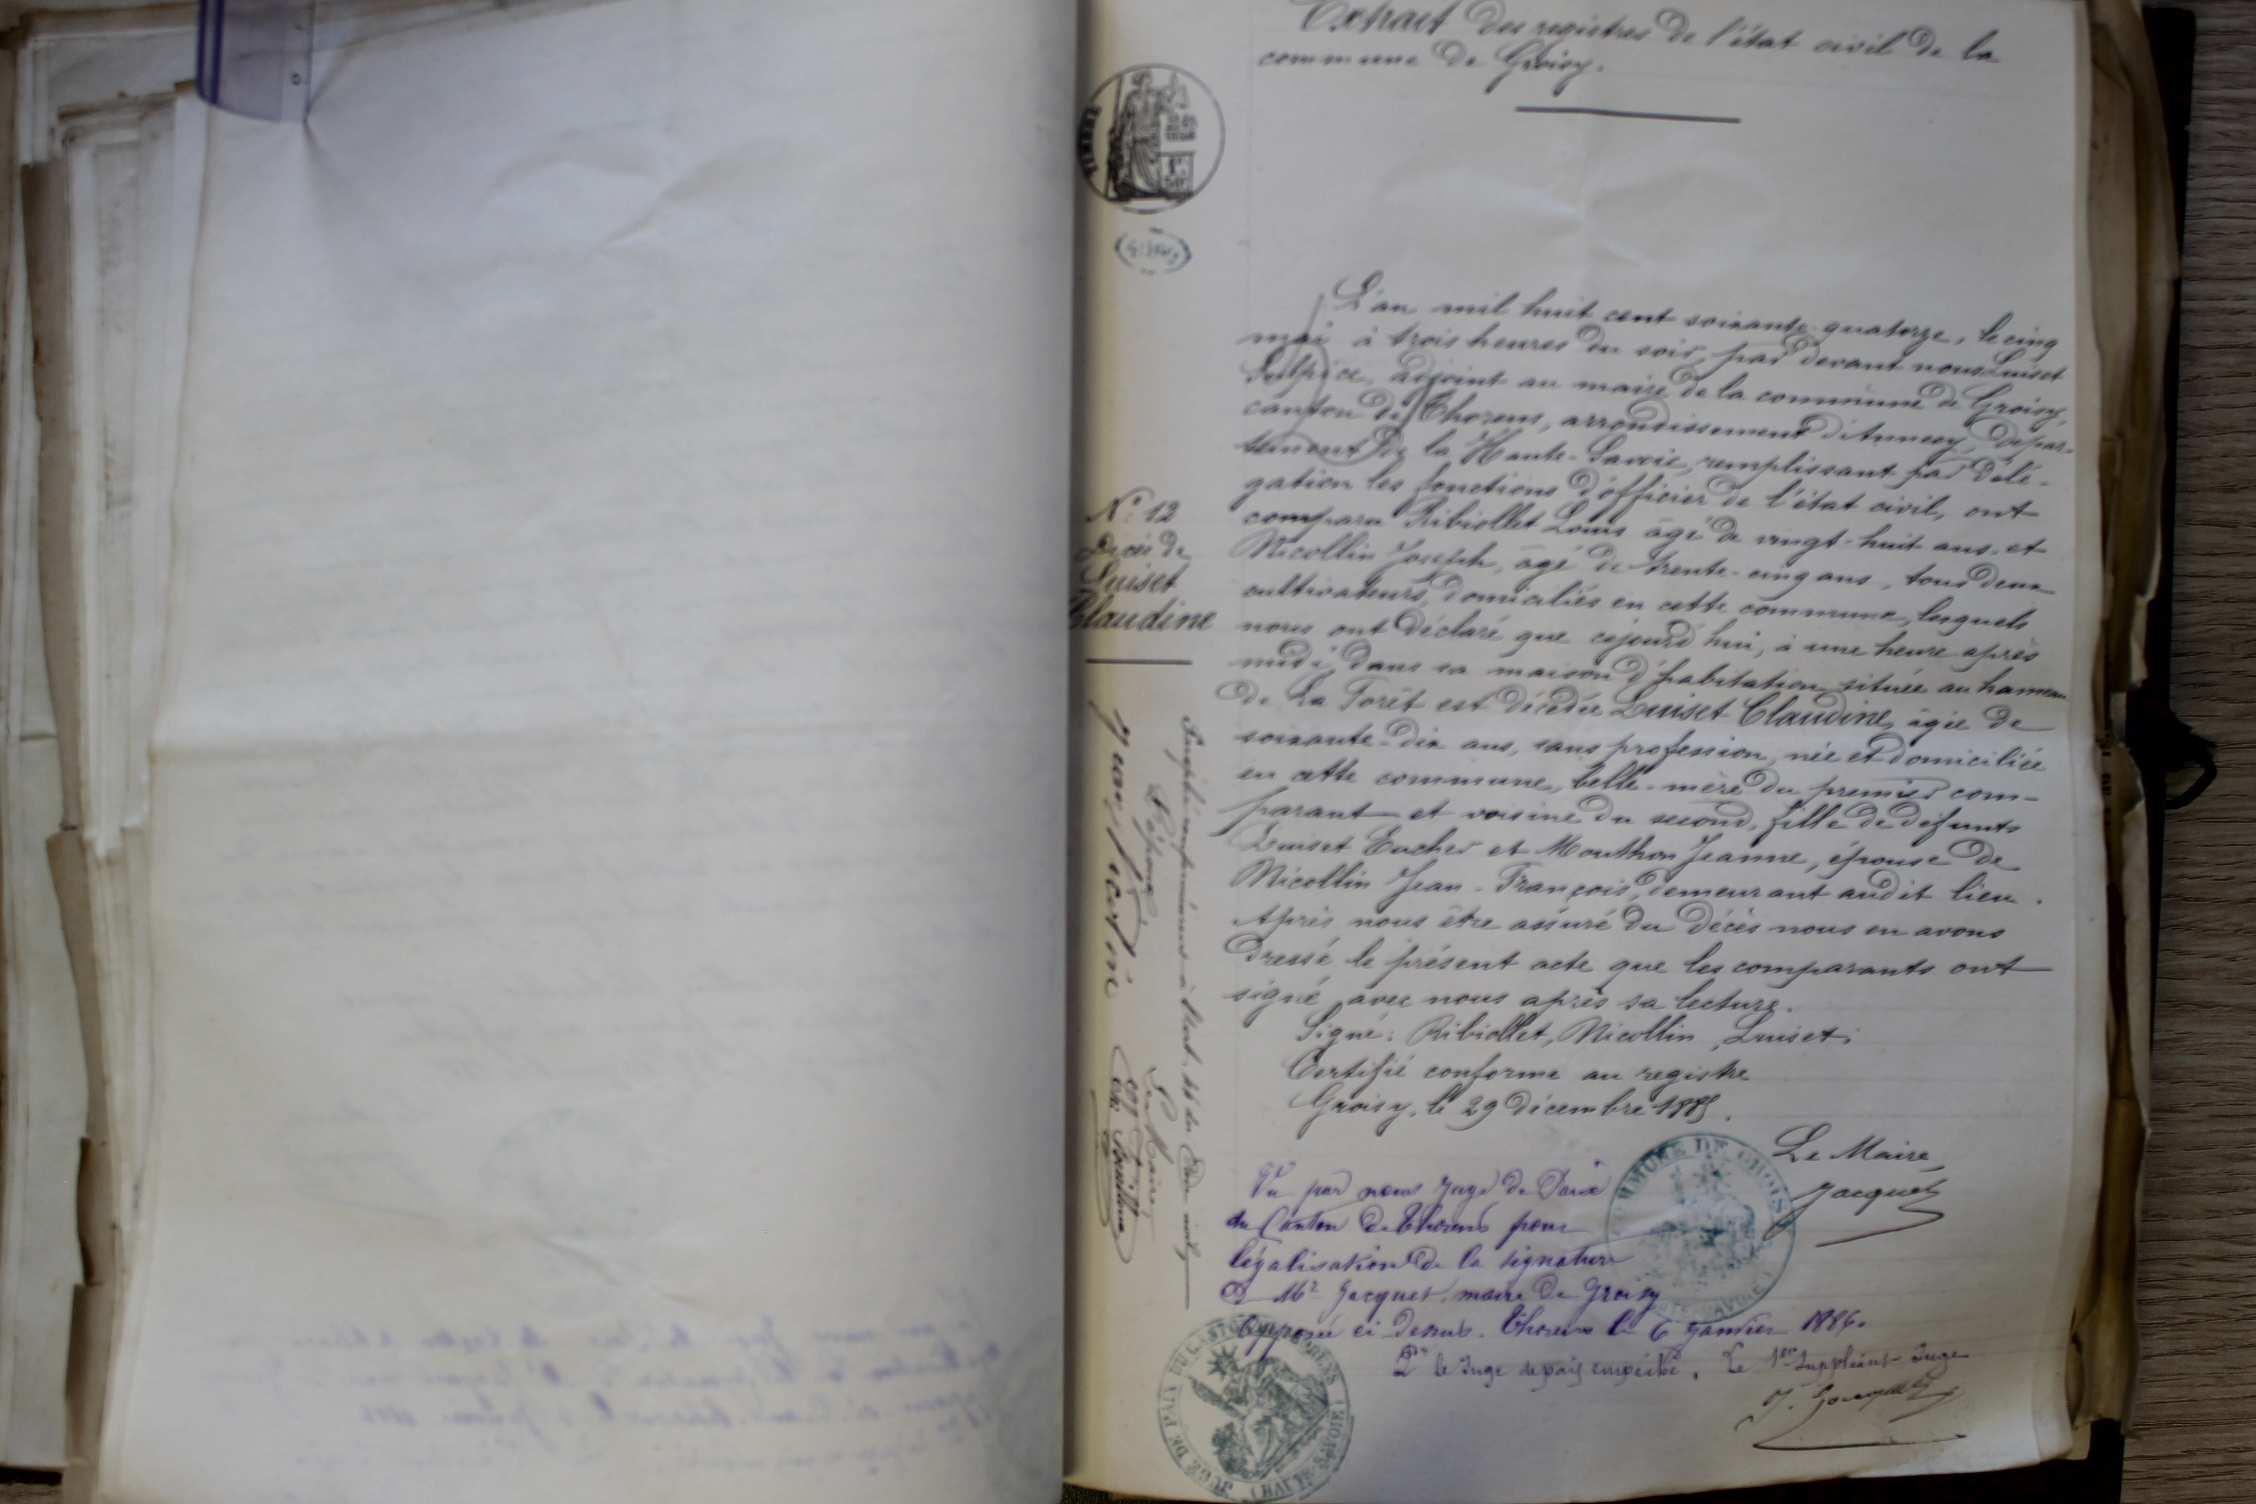 Extrait des registres de l'état civil de la
commune de Groisy.
L'an mil huit cent soixante-quatorze, le cinq
mai à trois heures du soir, par devant nous Luiset
Sulpice, adjoint au maire de la commune de Groisy,
canton de Thorens, arrondissement d'Annecy, dépar-
tement de la Haute-Savoie, remplissant par délé-
gation les fonctions d'officier de l'état civil, ont
comparu Ribiollet Louis âgé de vingt-huit ans, et
Nicollin Joseph, âgé de trente-cinq ans, tous deux
cultivateurs, domiciliés en cette commune, lesquels
nous ont déclaré que cejourd'hui, à une heure après
midi, dans sa maison d'habitation située au hameau
de La Forêt est décédée Luiset Claudine, âgée de
soixante-dix ans, sans profession, née et domiciliée
en cette commune, belle-mère du premier com-
parant et voisine du second, fille de défunts
Luiset Eucher et Mouthon Jeanne, épouse de
Nicollin Jean-François, demeurant audit lieu.
Après nous être assuré du décès nous en avons
dressé le présent acte que les comparants ont
signé avec nous après sa lecture.
Signé: Ribiollet, Nicollin, Luiset.
Certifié conforme au registre
Groisy, le 29 décembre 1885.
Le Maire,
Jacquet
N° 12
Décès de
Luiset
Claudine
Vu par nous Juge de Paix
du Canton de Thorens pour
légalisation de la signature
de Mr Jacquet, maire de Groisy
apposée ci-dessus. Thorens le 6 Janvier 1886.
Pr le Juge de paix empêché, Le 1er Suppléant-Juge
COMMUNE DE GROISY
JUGE DE PAIX DU CANTON DE THORENS
(HAUTE-SAVOIE)